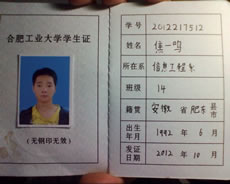 合肥工业大学学生证
(无钢印无效)
学号 2012217512
姓名 焦一鸣
所在系 信息工程系
班级 14
籍贯 安徽 省 肥东 县市
出生年月 1992 年 6 月
发证日期 2012 年 10 月